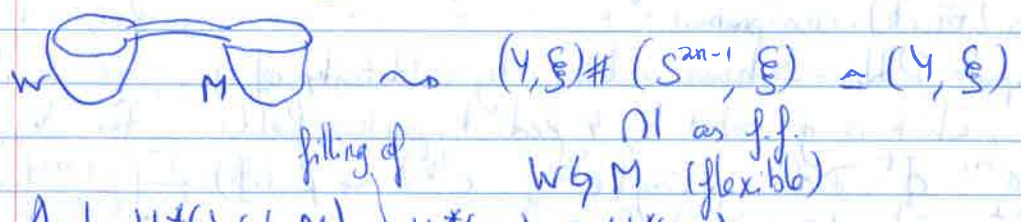 W M ~> (Y, ξ) # (S²ⁿ⁻¹, ξ) ≃ (Y, ξ)
filling of ∩| as f.f.
W ♮ M (flexible)